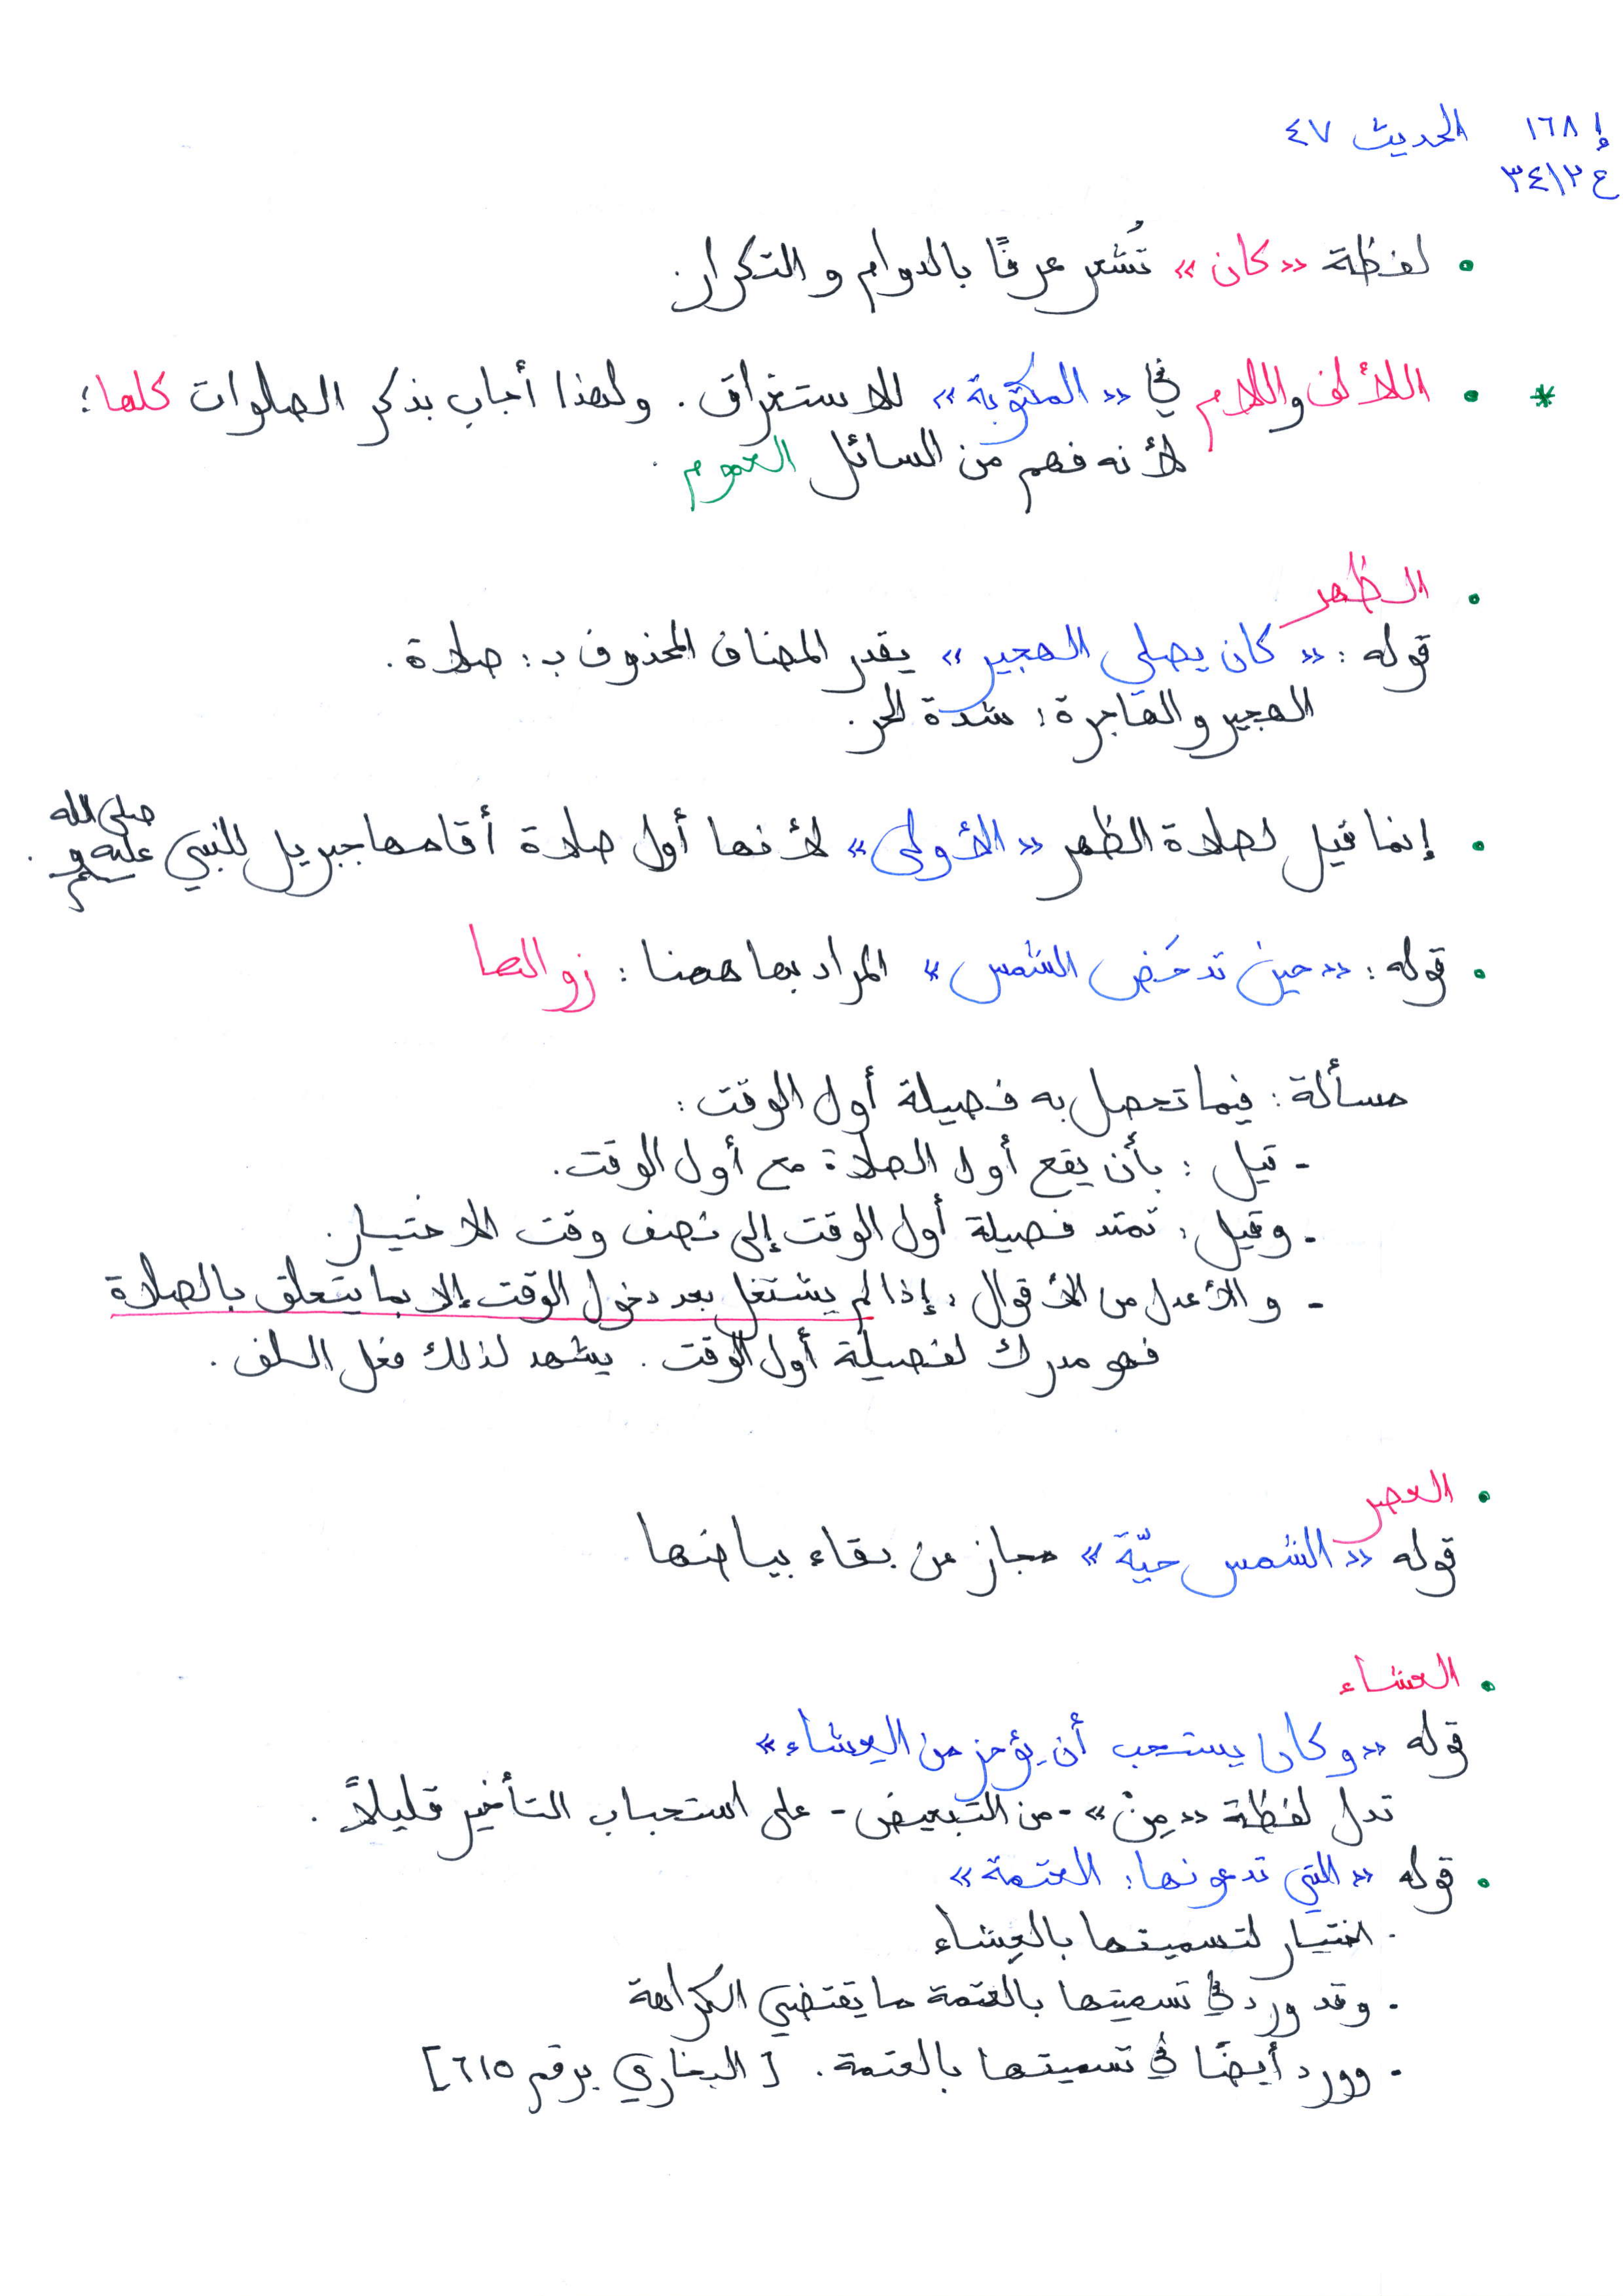 إ ١٦٨ الحديث ٤٧
ع ٣٤١٢
• لفظة «كان» تُشعر عرفًا بالدوام والتكرار.
* • اللألف واللام في «المكتوبة» للاستغراق. ولهذا أجاب بذكر الصلوات كلها؛
لأنه فهم من السائل العموم.
• الظهر
قوله: «كان يصلي الهجير» يقدر المضاف المحذوف بـ: صلاة.
الهجير والهاجرة: شدة الحر.
• إنما قيل لصلاة الظهر «الأولى» لأنها أول صلاة أقامها جبريل للنبي صلى الله عليه وسلم.
• قوله: «حين تدحَض الشمس» المراد بها ههنا: زوالها
مسألة: فيما تحصل به فضيلة أول الوقت:
- قيل: بأن يقع أول الصلاة مع أول الوقت.
- وقيل: تمتد فضيلة أول الوقت إلى نصف وقت الاختيار.
- والأعدل من الأقوال: إذا لم يشتغل بعد دخول الوقت إلا بما يتعلق بالصلاة
فهو مدرك لفضيلة أول الوقت. يشهد لذلك فعل السلف.
• العصر
قوله «الشمس حيّة» مجاز عن بقاء بياضها
• العشاء
قوله «وكان يستحب أن يؤخر من العشاء»
تدل لفظة «مِنْ» - من التبعيض - على استحباب التأخير قليلاً.
• قوله «التي تدعونها: العتمة»
. اختيار لتسميتها بالعِشاء
. وقد ورد في تسميتها بالعتمة ما يقتضي الكراهة
. وورد أيضًا في تسميتها بالعتمة. [البخاري برقم ٦١٥]